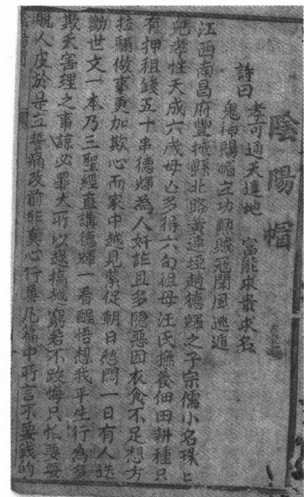 陰陽帽
詩曰
孝可通天達地　富能求貴求名
鬼神賜帽立功勳賊寇聞風逃遁
江西南昌府豐城縣北路黃連垭趙德輝之子宗儒小名珠七
兒孝性天成六歲母亡多得六旬祖母汪氏撫養佃田耕種只
有押租錢五十串德輝為人奸詐且多隱惡因衣食不足想方
拉騙做事更加欺心而家中越見緊促朝日愁悶一日有人送
勸世文一本乃三聖經直講德輝一看醒悟想我平生行為多
欺天害理之事諒必罪大所以越搞越窮若不改悔只忙要要
脫人皮於是立誓痛改前非真心行善凡篇中所言不要錢的